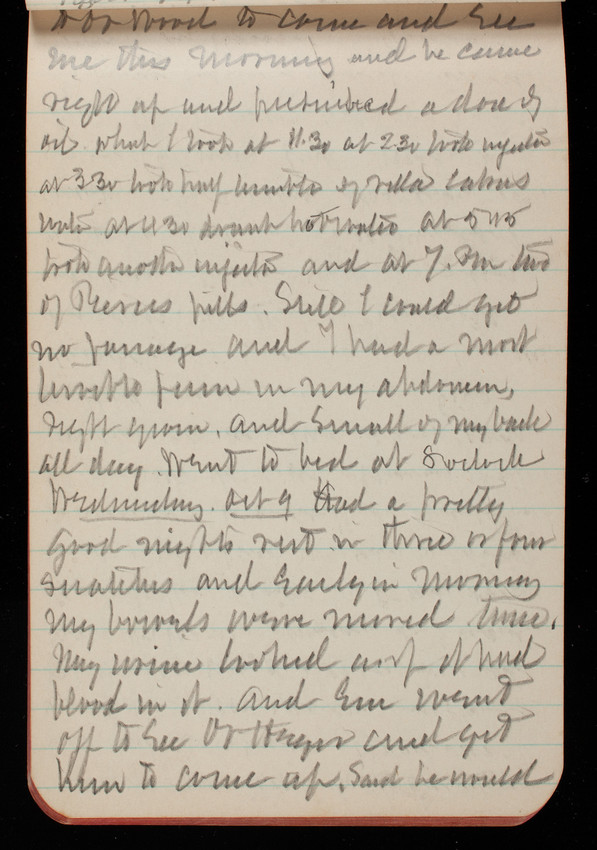 to Dr Wood to come and see
me this morning and he came
right up and prescribed a dose of
oil what I took at 11.30 at 2 30 took injectn
at 3 30 took half tumbler of
water at 4 30 drank hot water at 5 45
took another injectn and at 7. two
of Pierces pills. Still I could get
no passage and I had a most
terrible pain in my abdomen,
right groin, and small of my back
all day. Went to bed at 8 oclock
Wednesday. Oct 9 Had a pretty
good nights rest in three or four
snatches and early in morning
my bowels were moved twice.
My urine looked as if it had
blood in it. and Em went
off to see Dr and get
him to come up. Said he would